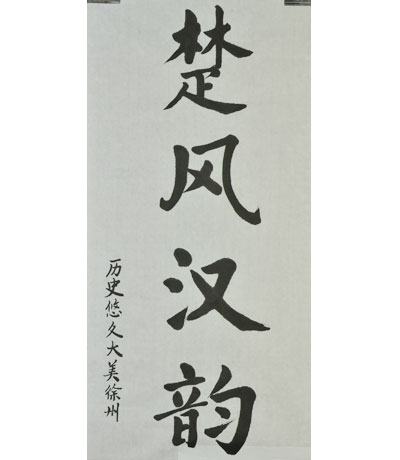 楚风汉韵
历史悠久大美徐州